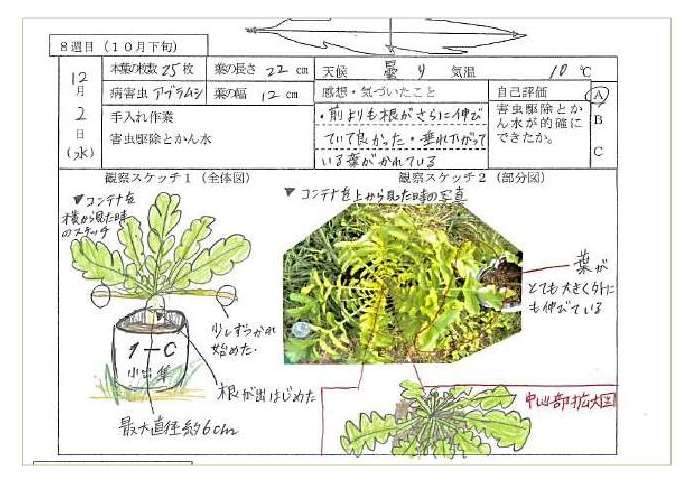 8週目(10月下旬)
12月2日(水)
本葉の枚数 25枚 葉の長さ 22 cm
病害虫 アブラムシ 葉の幅 12 cm
手入れ作業
害虫駆除とかん水
天候 曇り 気温 10℃
感想・気づいたこと
・前よりも根がさらに伸び
ていて良かった・垂れ下がって
いる葉がかれている
自己評価
害虫駆除とか
ん水が的確に
できたか。
A
B
C
観察スケッチ1(全体図)
▼コンテナを
横から見た時
のスケッチ
少しずつかれ
始めた。
1-C
根が出はじめた
最大直径約6cm
観察スケッチ2(部分図)
▼コンテナを上から見た時の写真
葉が
とても大きく外に
も伸びている
中心部拡大図